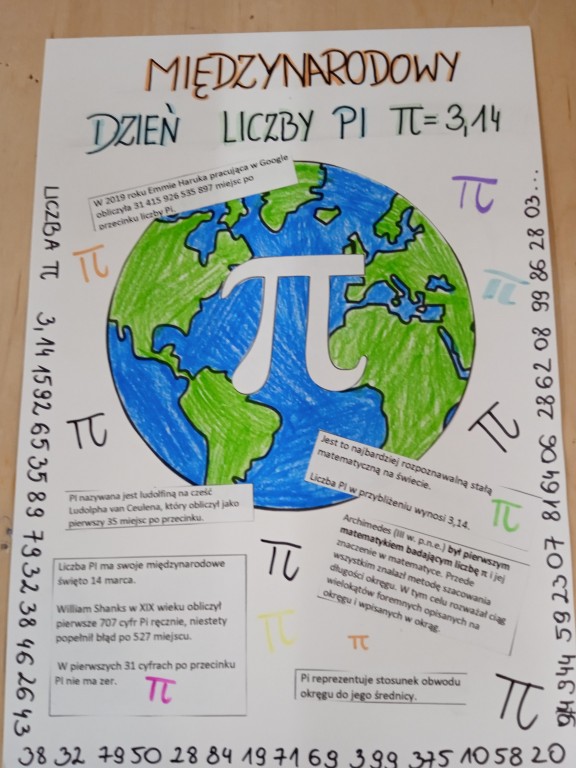 MIĘDZYNARODOWY
DZIEŃ LICZBY PI π = 3,14
W 2019 roku Emmie Haruka pracująca w Google
obliczyła 31 415 926 535 897 miejsc po
przecinku liczby Pi.
π
π
π
π
π
π
Jest to najbardziej rozpoznawalną stałą
matematyczną na świecie.
Liczba PI w przybliżeniu wynosi 3,14.
π
PI nazywana jest ludolfiną na cześć
Ludolpha van Ceulena, który obliczył jako
pierwszy 35 miejsc po przecinku.
Archimedes (III w. p.n.e.) był pierwszym
matematykiem badającym liczbę π i jej
znaczenie w matematyce. Przede
wszystkim znalazł metodę szacowania
długości okręgu. W tym celu rozważał ciąg
wielokątów foremnych opisanych na
okręgu i wpisanych w okrąg.
π
Liczba PI ma swoje międzynarodowe
święto 14 marca.
William Shanks w XIX wieku obliczył
pierwsze 707 cyfr Pi ręcznie, niestety
popełnił błąd po 527 miejscu.
W pierwszych 31 cyfrach po przecinku
PI nie ma zer.
π
π
π
Pi reprezentuje stosunek obwodu
okręgu do jego średnicy.
π
LICZBA π 3,14 15 92 65 35 89 79 32 38 46 26 43
38 32 79 50 28 84 19 71 69 399 375 10 58 20
944 59 23 07 81 64 06 28 62 08 99 86 28 03...